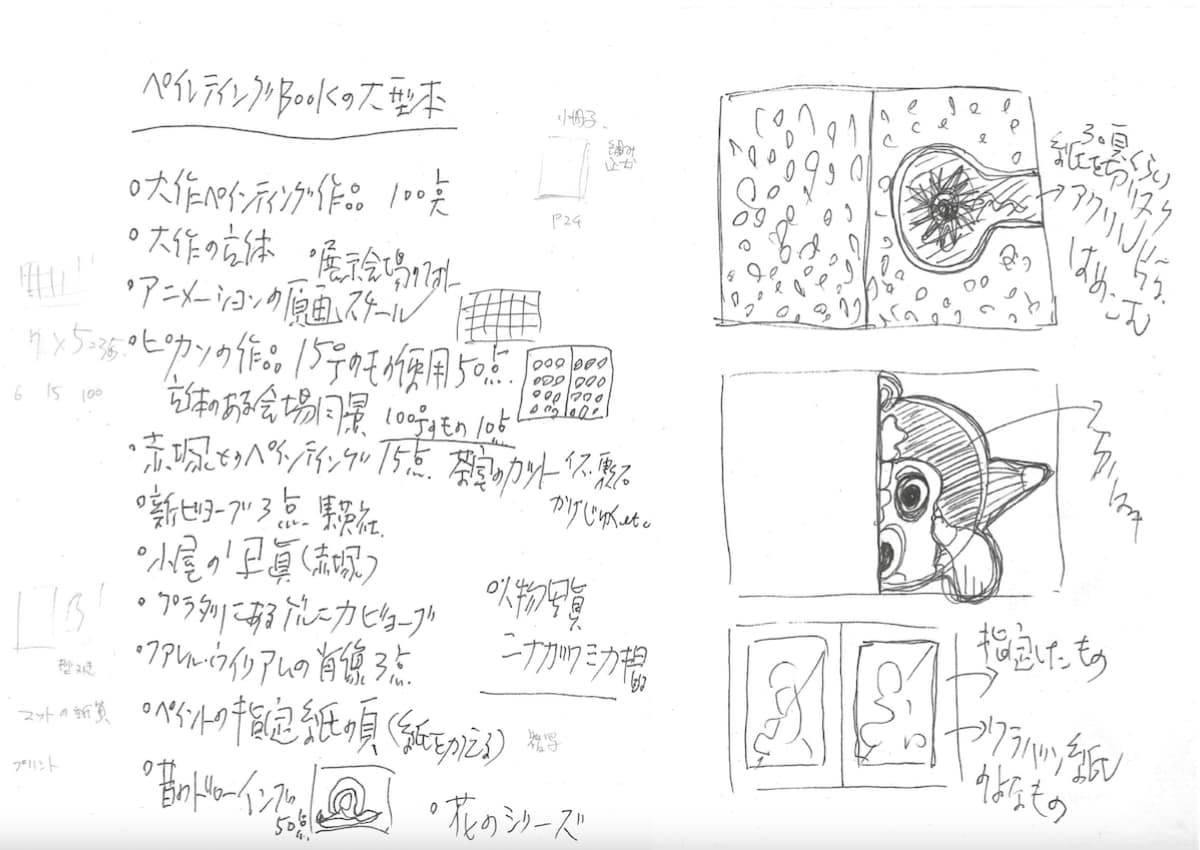 ペインティングBookの大型本
小冊子
P24
○大作ペインティング作品 100点
○大作の立体
○展示会場の
○アニメーションの原画スチール
7×5=35
6 15 100
○ピカソの作品 15号のもの使用 50点
立体のある会場風景 100号のもの 10点
○赤塚とのペインティング 15点
茶室のカット イス、
かけじく、etc
○新ビヨーブ 3点
○小屋の写真(赤塚)
○プラダにあるゲルニカビョーブ
○人物写真
ニナガワミカ撮
○ファレル・ウイリアムの肖像 3点
型ぬき
マットの紙質
プリント
○ペイントの指定紙の頁(紙をかえる)
○昔のドローイング
50点
○花のシリーズ
30頁
紙を
アクリル
はめこむ
指定したもの
クラバツン紙
のよなもの